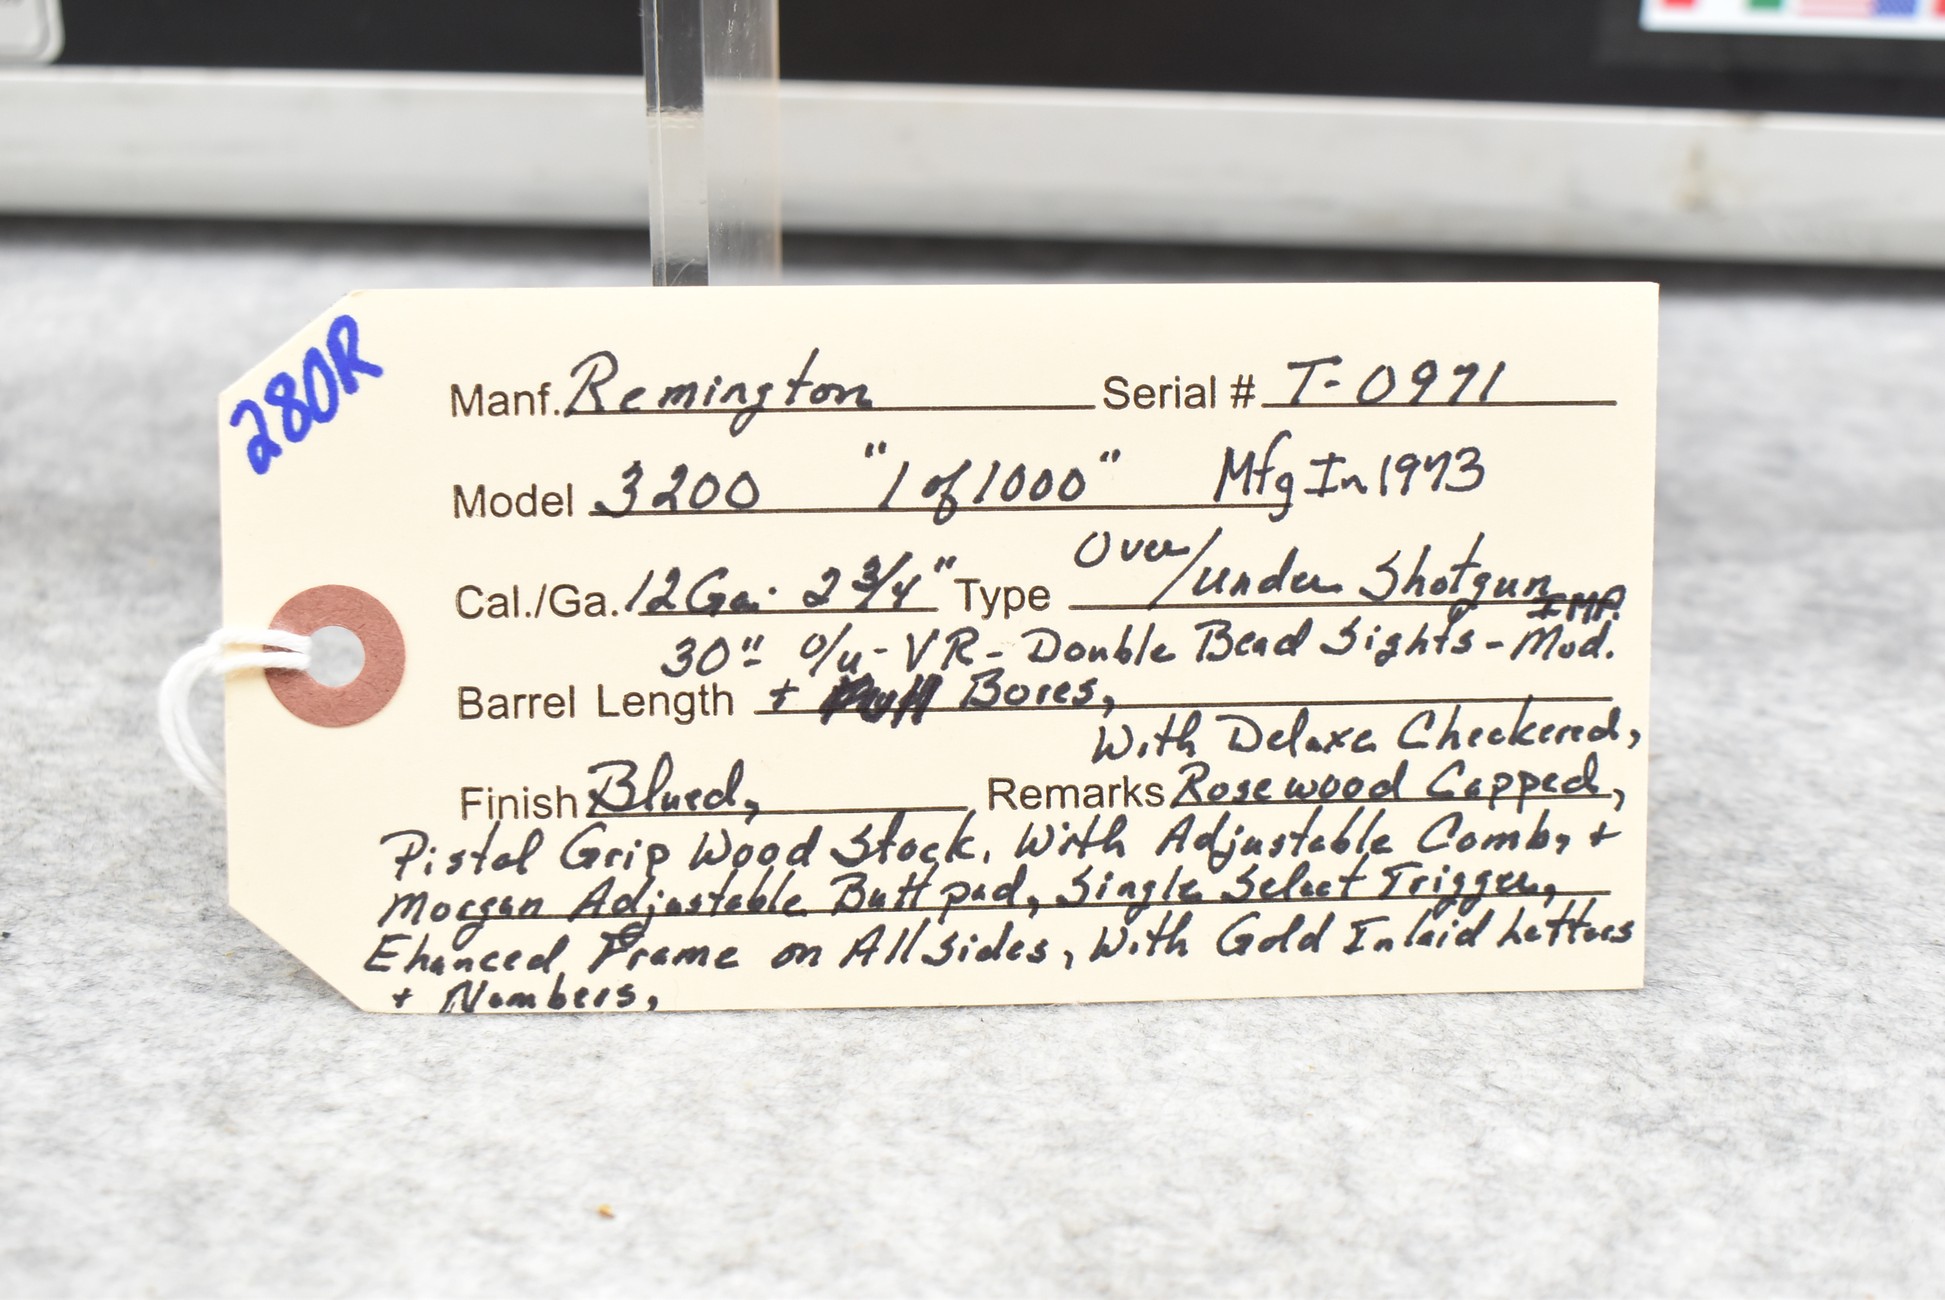 280R
Manf. Remington Serial # T-0971
Model 3200 "1 of 1000" Mfg In 1973
Cal./Ga. 12 Ga. 2 3/4" Type Over/under Shotgun
IMP.
30" O/u - VR - Double Bead Sights - Mod.
Barrel Length + Bores,
With Deluxe Checkered,
Finish Blued, Remarks Rosewood Capped,
Pistol Grip Wood Stock, With Adjustable Comb, +
Morgan Adjustable Butt pad, Single Select Trigger,
Ehanced Frame on All Sides, With Gold Inlaid Letters
+ Numbers,